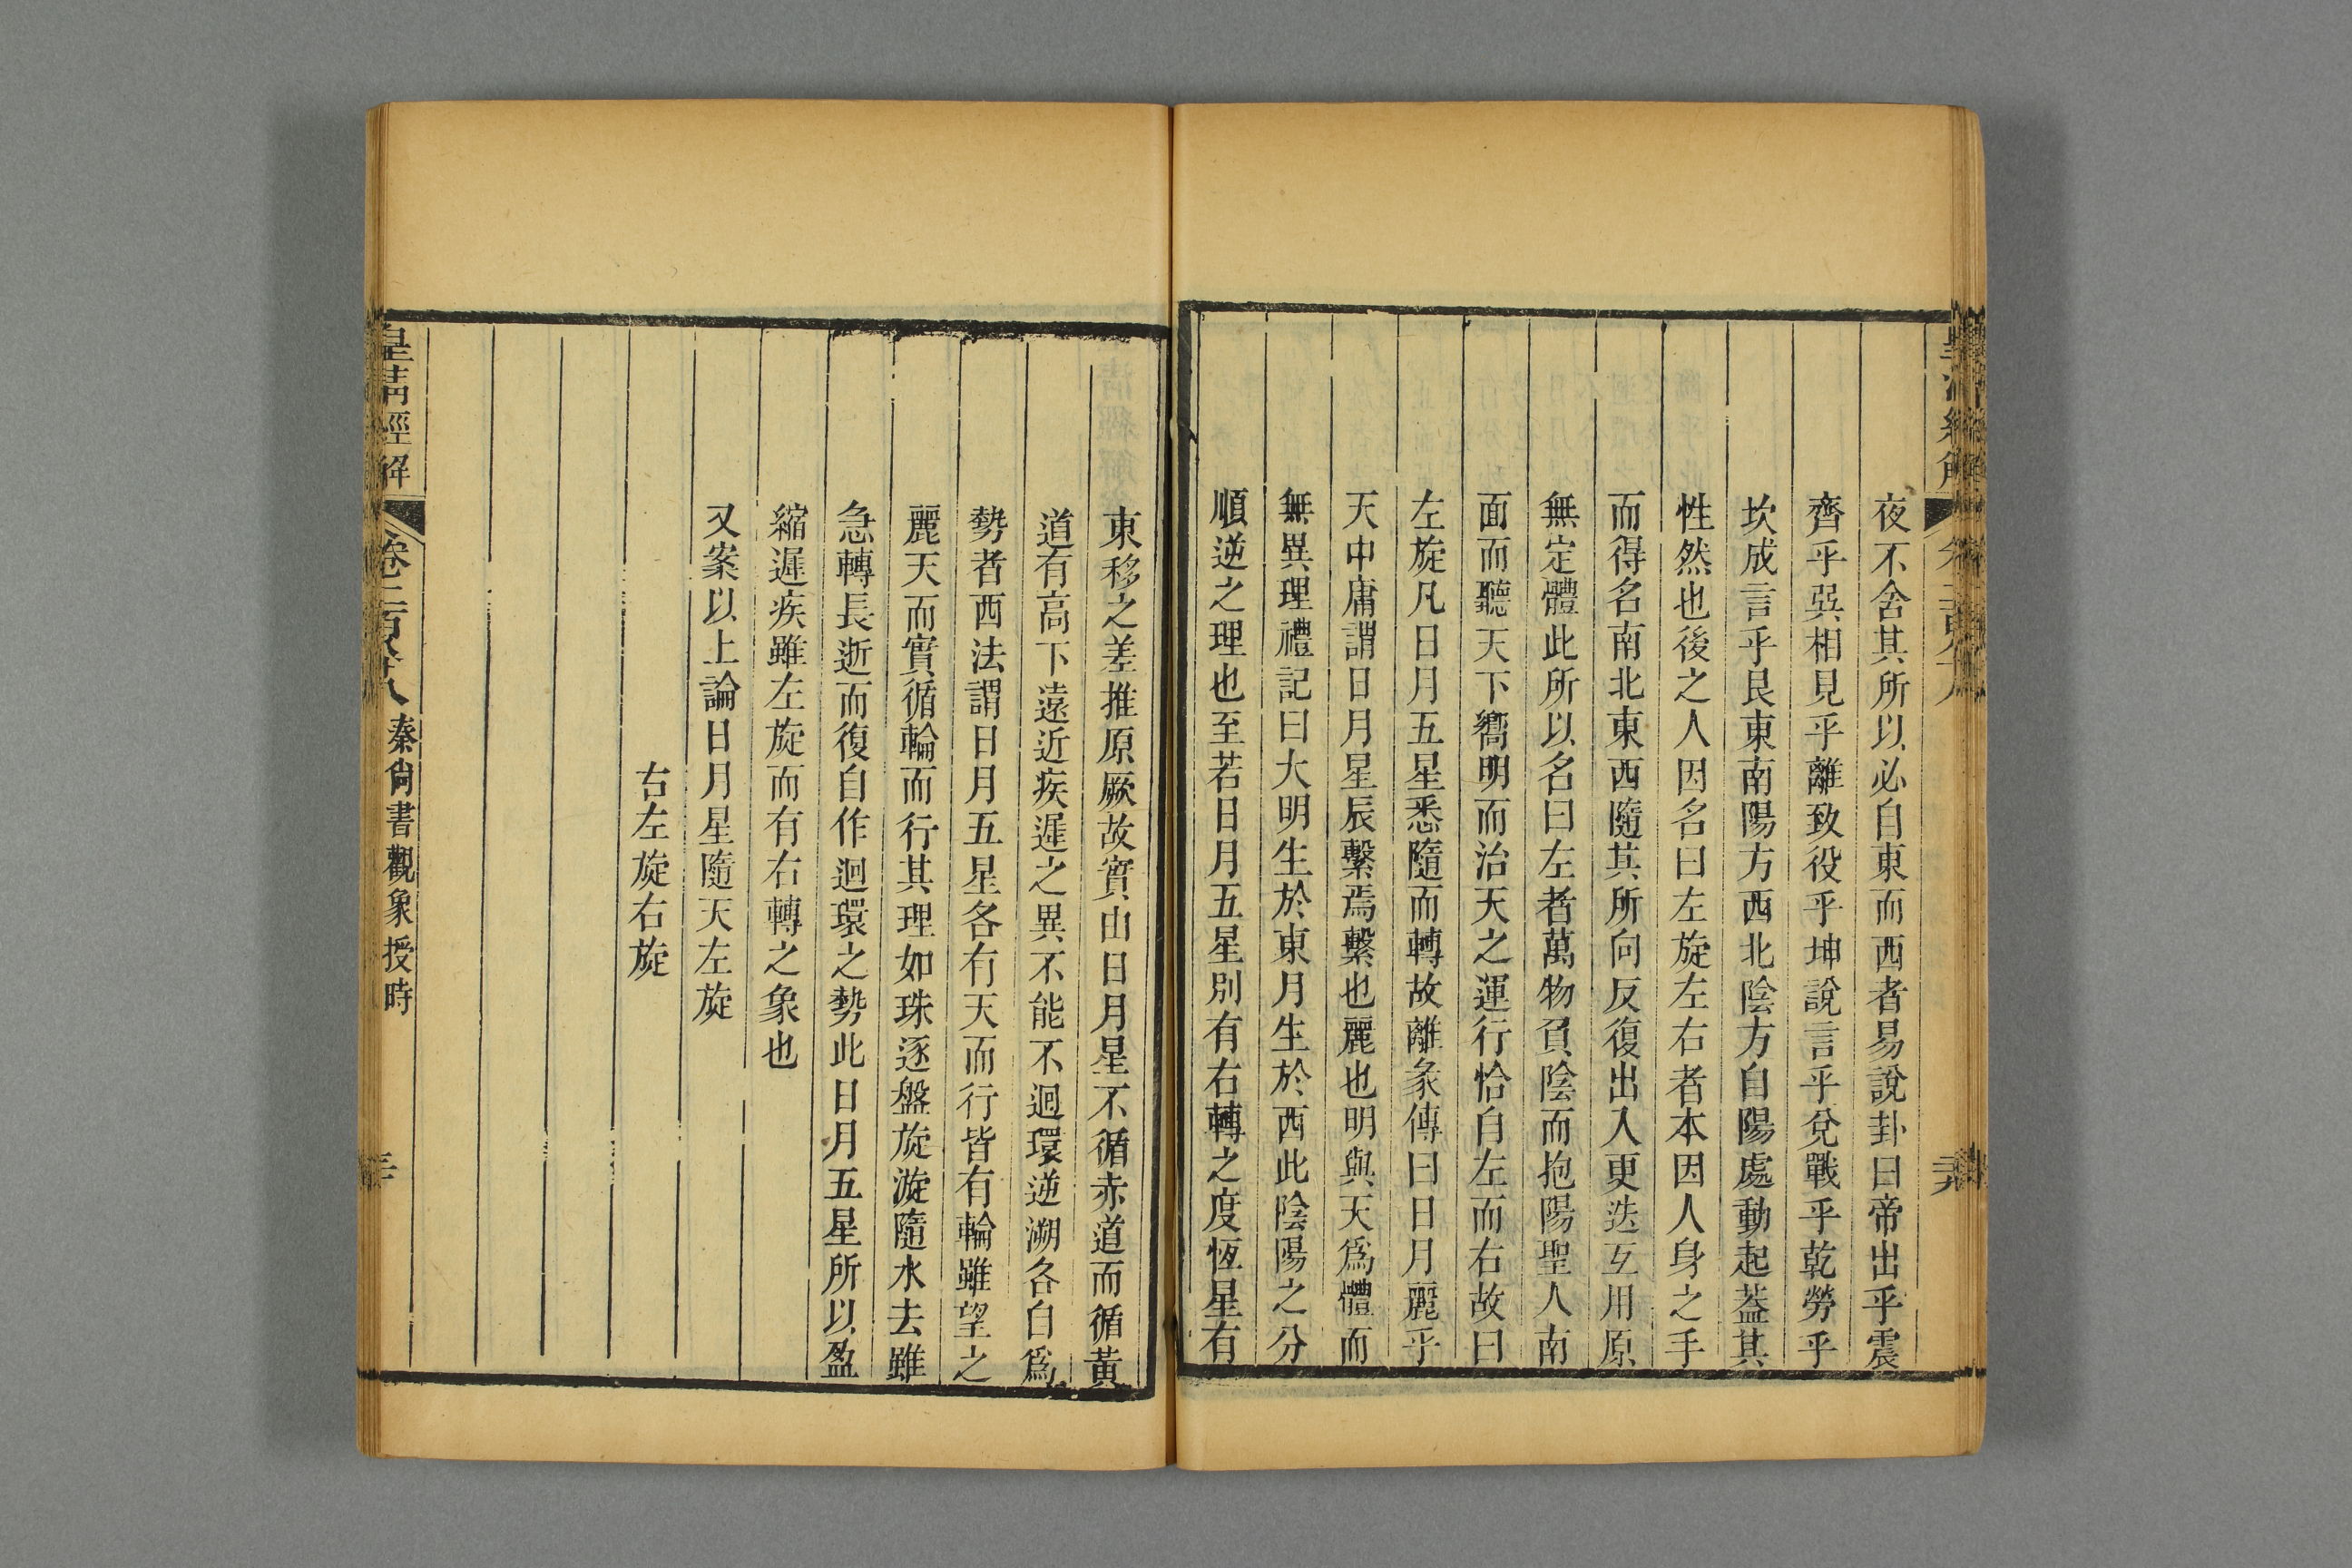 夜不舍其所以必自東而西者易說卦曰帝出乎震
齊乎巽相見乎離致役乎坤說言乎兌戰乎乾勞乎
坎成言乎艮東南陽方西北陰方自陽處動起葢其
性然也後之人因名曰左旋左右者本因人身之手
而得名南北東西隨其所向反復出入更迭互用原
無定體此所以名曰左者萬物負陰而抱陽聖人南
面而聽天下嚮明而治天之運行恰自左而右故曰
左旋凡日月五星悉隨而轉故離彖傳曰日月麗乎
天中庸謂日月星辰繫焉繫也麗也明與天爲體而
無異理禮記曰大明生於東月生於西此陰陽之分
順逆之理也至若日月五星別有右轉之度恆星有
東移之差推原厥故實由日月星不循赤道而循黃
道有高下遠近疾遲之異不能不迴環逆溯各自爲
勢者西法謂日月五星各有天而行皆有輪雖望之
麗天而實循輪而行其理如珠逐盤旋漩隨水去雖
急轉長逝而復自作迴環之勢此日月五星所以盈
縮遲疾雖左旋而有右轉之象也
又案以上論日月星隨天左旋
右左旋右旋
皇清經解
卷二百八十八
秦尙書觀象授時
三